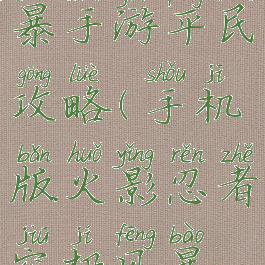 暴手游平民
gōng lüè shǒu jī
攻略(手机
bǎn huǒ yǐng rěn zhě
版火影忍者
jiū jí fēng bào
究极风暴